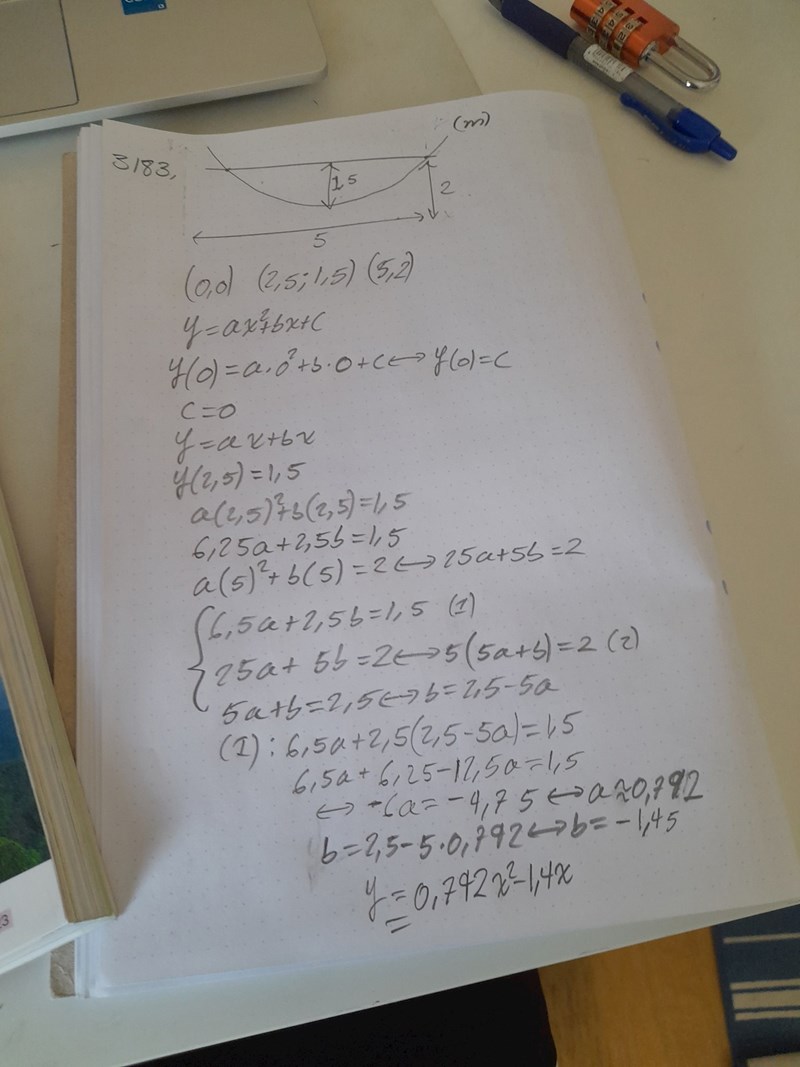 3183,
(m)
1,5
2
5
(0,0) (2,5; 1,5) (5,2)
y=ax²+bx+c
y(0)=a·0²+b·0+c↔y(0)=c
c=0
y=ax+bx
y(2,5)=1,5
a(2,5)²+b(2,5)=1,5
6,25a+2,5b=1,5
a(5)²+b(5)=2↔25a+5b=2
6,5a+2,5b=1,5 (1)
25a+5b=2↔5(5a+b)=2 (2)
5a+b=2,5↔b=2,5-5a
(1): 6,5a+2,5(2,5-5a)=1,5
6,5a+6,25-12,5a=1,5
↔ -6a=-4,75↔a≈0,792
b=2,5-5·0,792↔b=-1,45
y=0,792x²-1,4x